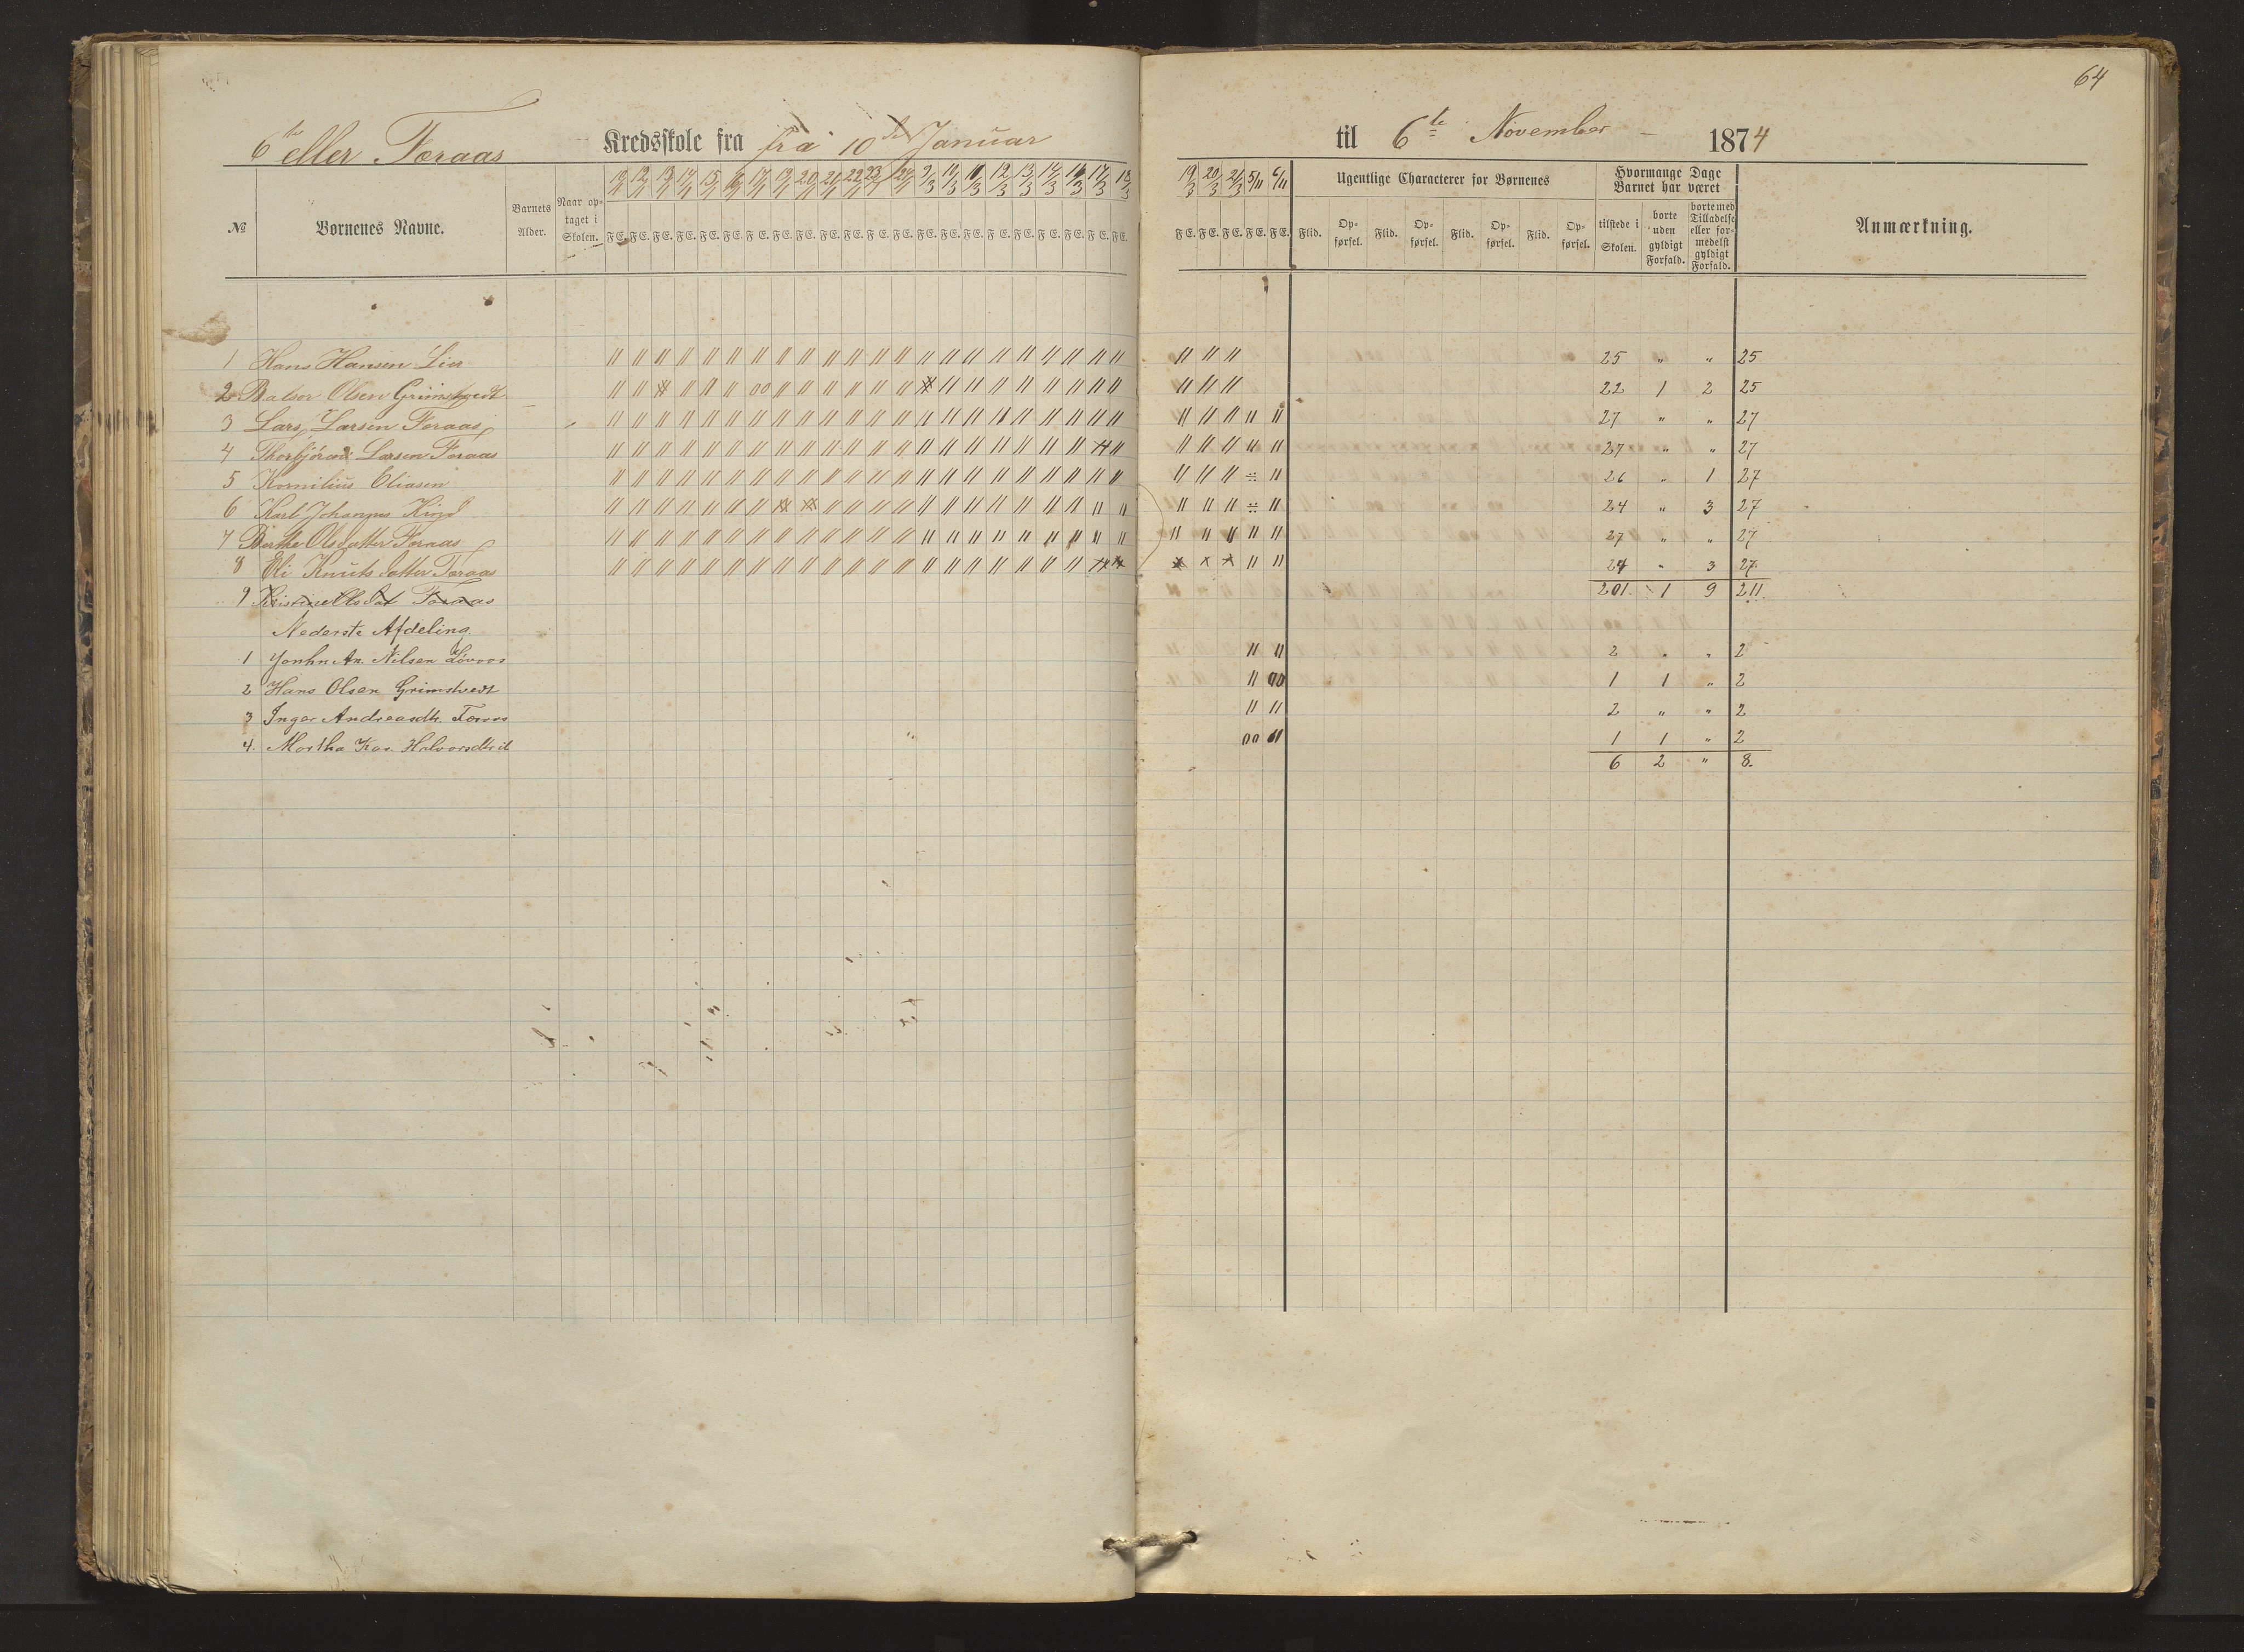 64
6te eller Foraas Kredsskole fra fra 10de Januar til 6te November 1874
№ Børnenes Navne. Barnets Alder. Naar optaget i Skolen. Ugentlige Characterer for Børnenes Hvormange Dage Barnet har været Anmærkning.
19/3 20/3 21/3 5/11 6/11
F E. F E. F E. F E. F E. F E. F E. F E. F E. F E. F E. F E. F E. F E. F E. F E. F E. F E. F E. F E. F E. F E.
F E. F E. F E. F E. F E. Flid. Opførsel. Flid. Opførsel. Flid. Opførsel. Flid. Opførsel. tilstede i Skolen. borte uden gyldigt Forfald. borte med Tilladelse eller formedelst gyldigt Forfald.
1 Hans Hansen Lier 25 " " 25
2 Olsen Grimstvedt 22 1 2 25
3 Lars Larsen Foraas 27 " " 27
4 Larsen Foraas 27 " " 27
5 Kornilius Eliasen 26 " 1 27
6 Karl 24 " 3 27
7 Berthe Olsdatter Foraas 27 " " 27
8 Eli Knutsdatter Foraas 24 " 3 27
9 Kristine Olsdat Foraas 201 1 9 211
Nederste Afdeling.
1 An. Nilsen 2 " " 2
2 Hans Olsen Grimstvedt 1 1 " 2
3 Inger Andreasdtr. Foraas 2 " " 2
4. Martha Kar. 1 1 " 2
6 2 " 8.